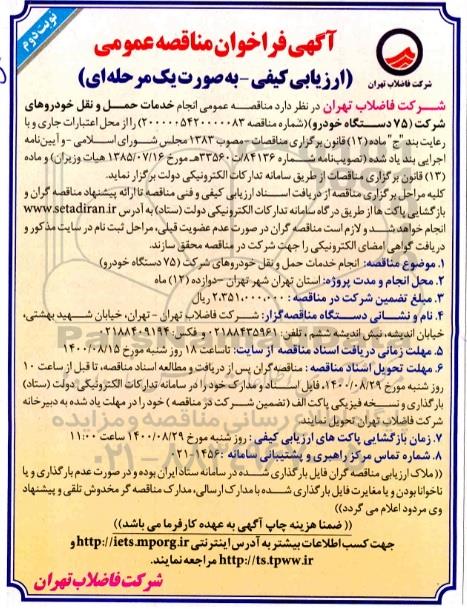 نوبت دوم
آگهی فراخوان مناقصه عمومی
(ارزیابی کیفی - به صورت یک مرحله ای)
شرکت فاضلاب تهران
شرکت فاضلاب تهران در نظر دارد مناقصه عمومی انجام خدمات حمل و نقل خودروهای
شرکت (۷۵ دستگاه خودرو)(شماره مناقصه ۲۰۰۰۰۰۵۴۲۰۰۰۰۰۸۳) را از محل اعتبارات جاری و با
رعایت بند "ج" ماده (۱۲) قانون برگزاری مناقصات - مصوب ۱۳۸۳ مجلس شورای اسلامی - و آیین‌نامه
اجرایی بند یاد شده (تصویب‌نامه شماره ۸۴۱۳۶/ت۳۳۵۶۰هـ مورخ ۱۳۸۵/۰۷/۱۶ هیات وزیران) و ماده
(۱۳) قانون برگزاری مناقصات از طریق سامانه تدارکات الکترونیکی دولت برگزار نماید.
کلیه مراحل برگزاری مناقصه از دریافت اسناد ارزیابی کیفی و فنی مناقصه تا ارائه پیشنهاد مناقصه گران و
بازگشایی پاکت ها از طریق درگاه سامانه تدارکات الکترونیکی دولت (ستاد) به آدرس www.setadiran.ir
انجام خواهد شد و لازم است مناقصه گران در صورت عدم عضویت قبلی، مراحل ثبت نام در سایت مذکور و
دریافت گواهی امضای الکترونیکی را جهت شرکت در مناقصه محقق سازند.
۱. موضوع مناقصه: انجام خدمات حمل و نقل خودروهای شرکت (۷۵ دستگاه خودرو)
۲. محل انجام و مدت پروژه: استان تهران شهر تهران - دوازده (۱۲) ماه
۳. مبلغ تضمین شرکت در مناقصه : ۲،۳۵۱،۰۰۰،۰۰۰ ریال
۴. نام و نشانی دستگاه مناقصه‌گزار: شرکت فاضلاب تهران - تهران، خیابان شهید بهشتی،
خیابان اندیشه، نبش اندیشه ششم ، تلفن: ۰۲۱۸۸۴۳۵۹۶۱ و فکس: ۰۲۱۸۸۴۰۹۱۹۴
۵. مهلت زمانی دریافت اسناد مناقصه از سایت: تا ساعت ۱۸ روز شنبه مورخ ۱۴۰۰/۰۸/۱۵
۶. مهلت تحویل اسناد مناقصه : مناقصه گران پس از دریافت و مطالعه اسناد مناقصه، تا قبل از ساعت ۱۰
روز شنبه مورخ ۱۴۰۰/۰۸/۲۹، فایل اسناد و مدارک خود را در سامانه تدارکات الکترونیکی دولت (ستاد)
بارگذاری و نسخه فیزیکی پاکت الف (تضمین شرکت در مناقصه ) خود را در مهلت یاد شده به دبیرخانه
شرکت فاضلاب تهران تحویل نمایند.
۷. زمان بازگشایی پاکت های ارزیابی کیفی : روز شنبه مورخ ۱۴۰۰/۰۸/۲۹ ساعت ۱۱:۰۰
۸. شماره تماس مرکز راهبری و پشتیبانی سامانه : ۱۴۵۶-۰۲۱
((ملاک ارزیابی مناقصه گران فایل بارگذاری شده در سامانه ستاد ایران بوده و در صورت عدم بارگذاری و یا
ناخوانا بودن و یا مغایرت فایل بارگذاری شده با مدارک ارسالی، مدارک مناقصه گر مخدوش تلقی و پیشنهاد
وی مردود اعلام می گردد))
(( ضمنا هزینه چاپ آگهی به عهده کارفرما می باشد))
جهت کسب اطلاعات بیشتر به آدرس اینترنتی http://iets.mporg.ir و
http://ts.tpww.ir مراجعه نمایند.
شرکت فاضلاب تهران